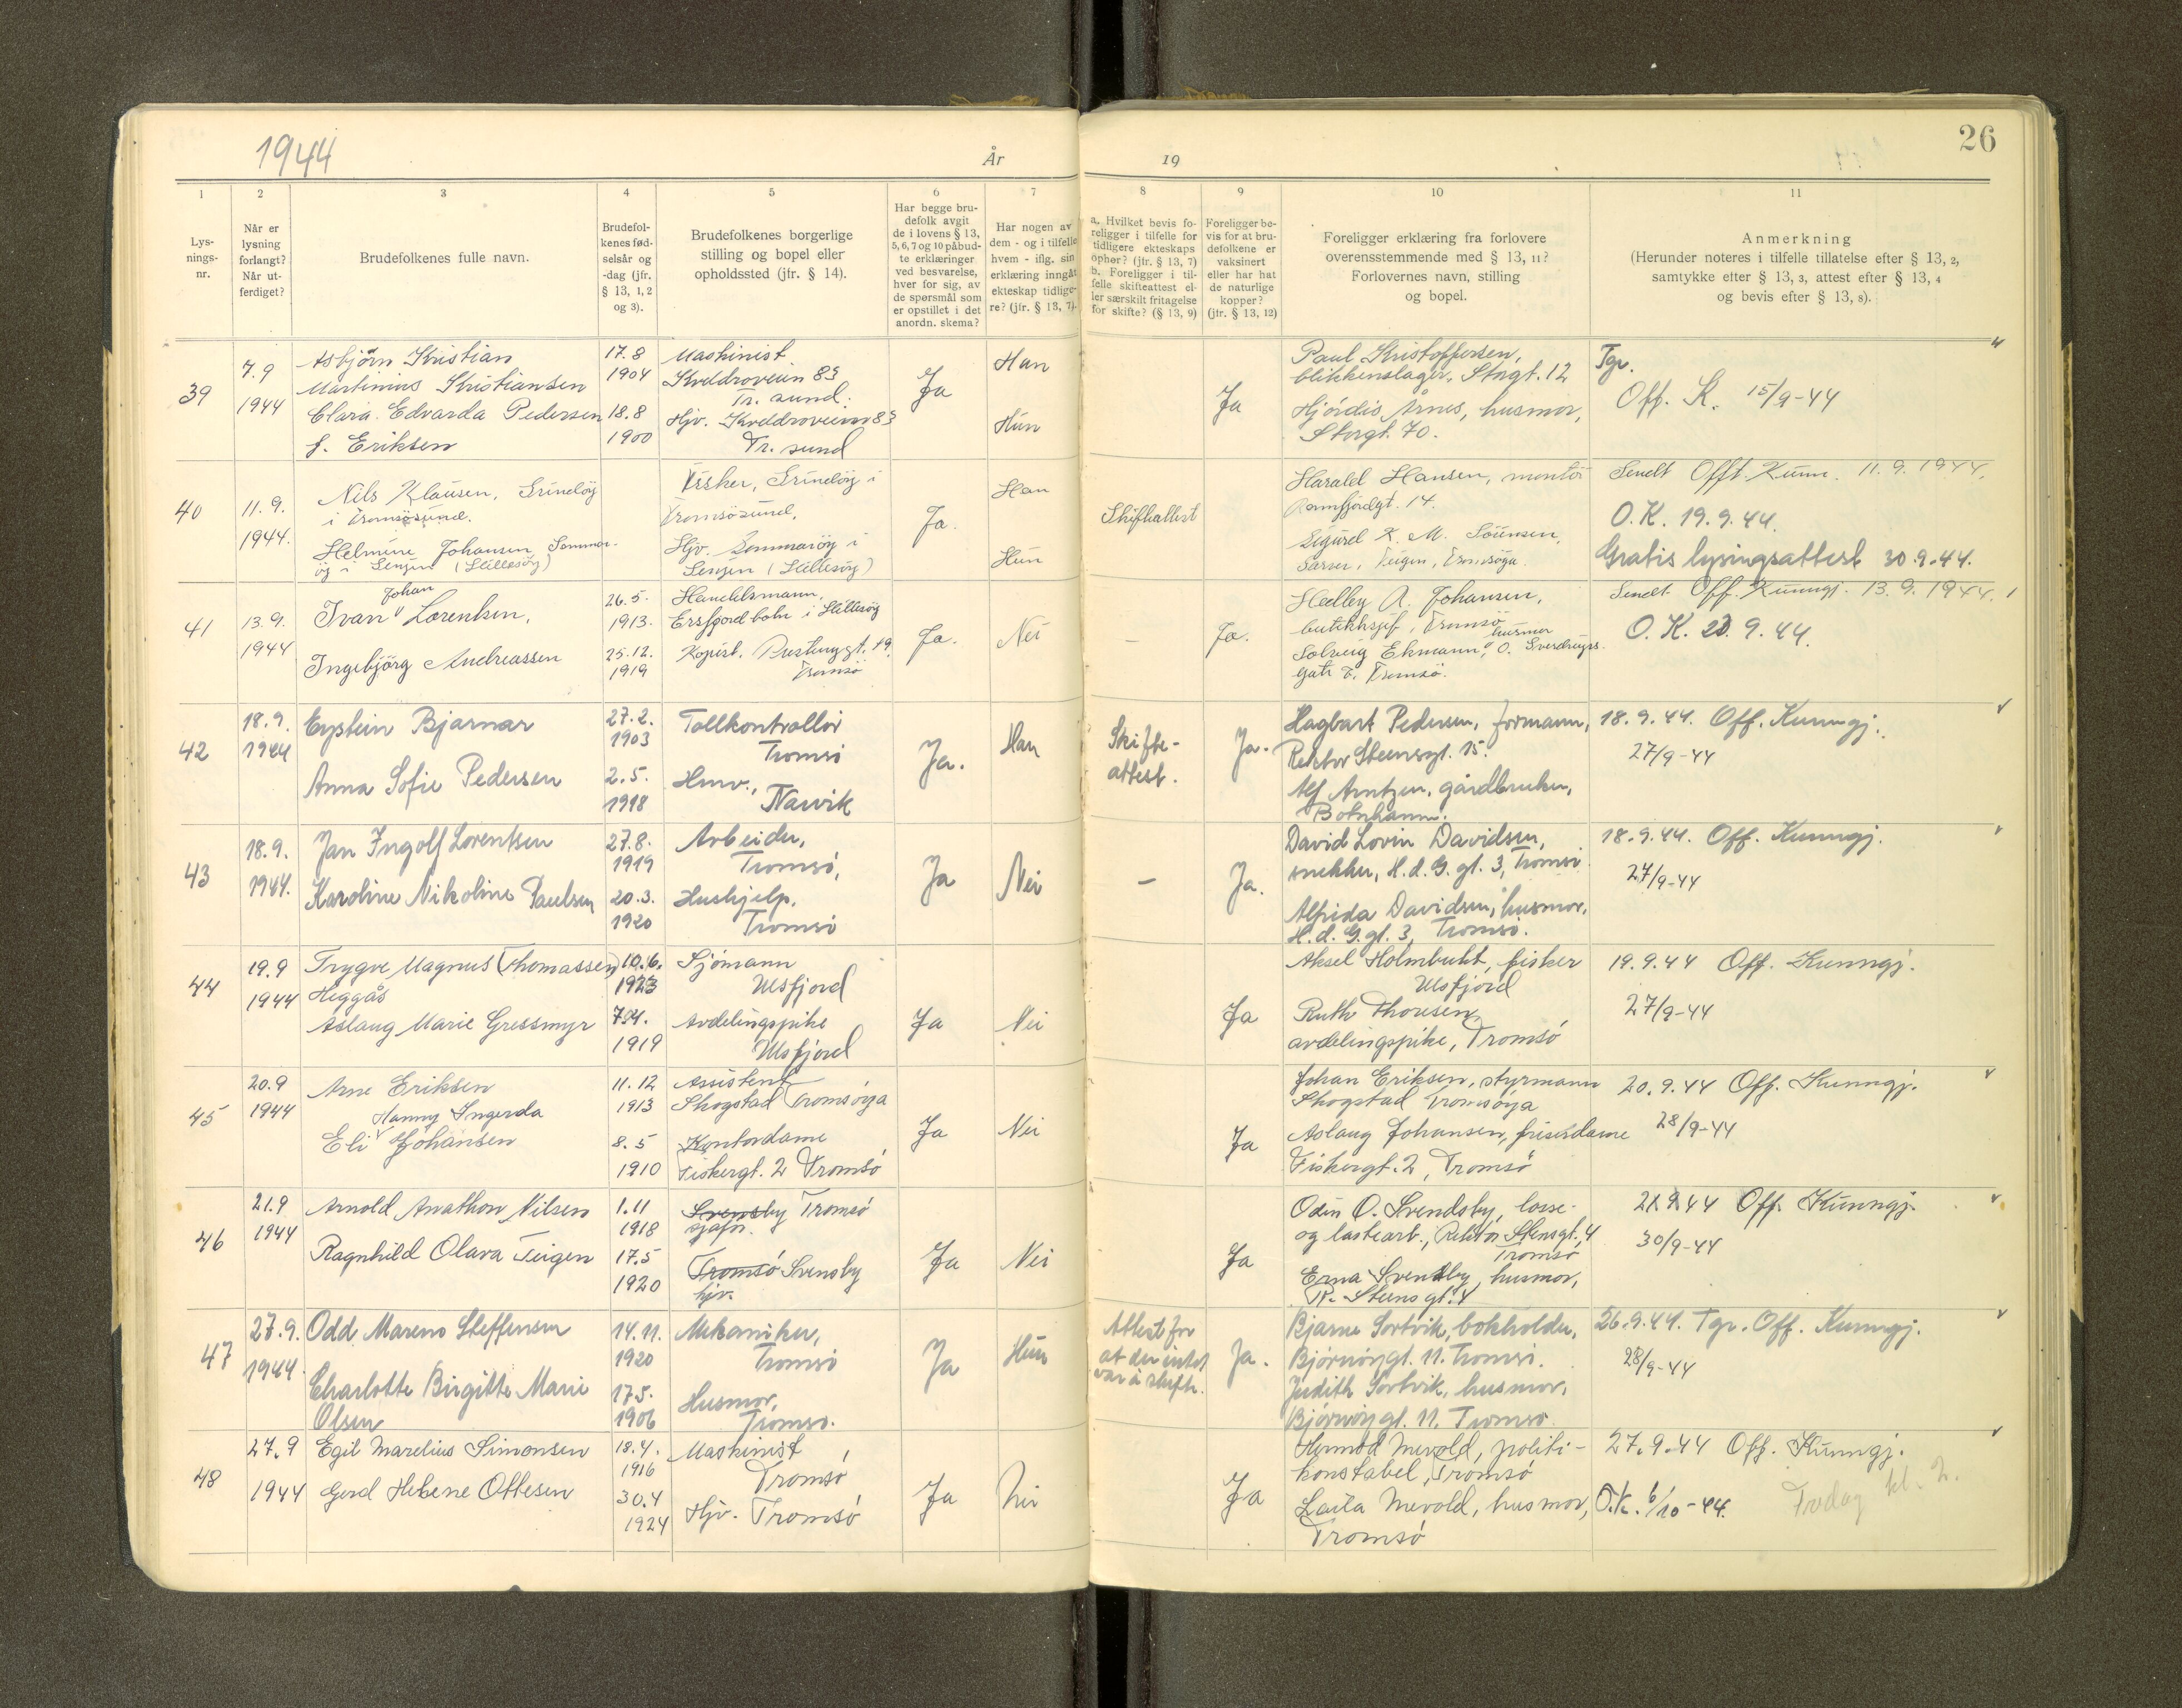 1944
År
19
26
1
2
3
4
5
6
7
8
9
10
11
Lys-
nings-
nr.
Når er
lysning
forlangt?
Når ut-
ferdiget?
Brudefolkenes fulle navn.
Brudefol-
kenes fød-
selsår og
-dag (jfr.
§ 13, 1, 2
og 3).
Brudefolkenes borgerlige
stilling og bopel eller
opholdssted (jfr. § 14).
Har begge bru-
defolk avgit
de i lovens § 13,
5, 6, 7 og 10 påbud-
te erklæringer
ved besvarelse,
hver for sig, av
de spørsmål som
er opstillet i det
anordn. skema?
Har nogen av
dem - og i tilfelle
hvem - iflg. sin
erklæring inngåt
ekteskap tidlige-
re? (jfr. § 13, 7).
a. Hvilket bevis fo-
religger i tilfelle for
tidligere ekteskaps
ophør? (jfr. § 13, 7)
b. Foreligger i til-
felle skifteattest el-
ler særskilt fritagelse
for skifte? (§ 13, 9)
Foreligger be-
vis for at bru-
defolkene er
vaksinert
eller har hat
de naturlige
kopper?
(jfr. § 13, 12)
Foreligger erklæring fra forlovere
overensstemmende med § 13, 11?
Forlovernes navn, stilling
og bopel.
Anmerkning
(Herunder noteres i tilfelle tillatelse efter § 13, 2,
samtykke efter § 13, 3, attest efter § 13, 4
og bevis efter § 13, 8).
39
7.9
1944
Asbjørn Kristian
Martinius Kristiansen
Clara Edvarda Pedersen
f. Eriksen
17.8
1904
18.8
1900
Maskinist
Kvaldroveien 83
Tr. sund.
Hjv. Kvaldroveien 83
Tr. sund
Ja
Han
Hun
Ja
Paul Kristoffersen,
blikkenslager, Storgt. 12
Hjördis Årnes, husmor,
Storgt. 70.
Tgr.
Off. K. 15/9-44
40
11.9.
1944.
Nils Klausen, Grindöy
i Tromsösund.
Helmine Johansen, Sommar-
öy i Senjen (Hillesöy)
Fisker, Grindöy i
Tromsösund,
Hjv. Sommaröy i
Senjen (Hillesöy)
Ja.
Han
Hun
Skifteattest
Harald Hansen, montör
Ramfjordgt. 14.
Sigurd K. M. Sörensen,
Teigen, Tromsöya.
Sendt Offt. Kunn. 11.9.1944.
O.K. 19.9.44.
Gratis lysingsattest 30.9.44.
41
13.9.
1944
Johan
Ivar Lorentsen,
Ingebjörg Andreassen
26.5.
1913.
25.12.
1919
Handelsmann,
Ersfjordbotn i Hillesöy
Kopist. Prestenggt. 19,
Tromsö
Ja.
Nei
–
Ja.
Hedley A. Johansen,
butikksjef, Tromsö
husmor
Solveig Ekmann, O. Sverdrups.
gate 7. Tromsö.
Sendt Off. Kunngj. 13.9.1944.
O.K. 23.9.44.
42
18.9.
1944
Eystein Bjarnar
Anna Sofie Pedersen
27.2.
1903
2.5.
1918
Tollkontrollör
Tromsö
Hmv.,
Narvik
Ja.
Han
Skifte-
attest.
Ja.
Hagbart Pedersen, formann,
Rektor Steensgt. 15.
Alf Arntzen, gårdbruker,
Botnhamn.
18.9.44. Off. Kunngj.
27/9-44
43
18.9.
1944.
Jan Ingolf Lorentsen
Karoline Nikoline Paulsen
27.8.
1919
20.3.
1920
Arbeider,
Tromsö,
Hushjelp,
Tromsö
Ja
Nei
–
Ja.
David Lovin Davidsen,
snekker, H. d. G. gt. 3, Tromsö
Alfrida Davidsen, husmor,
H. d. G. gt. 3, Tromsö.
18.9.44. Off. Kunngj.
27/9-44
44
19.9
1944
Trygve Magnus (Thomassen)
Heggås
Aslaug Marie Gressmyr
10.6.
1923
7.4.
1919
Sjömann
Ulsfjord
Avdelingspike
Ulsfjord
Ja
Nei
Ja
Aksel Holmbukt, fisker
Ulsfjord
Ruth Thoresen,
avdelingspike, Tromsö
19.9.44 Off. Kunngj.
27/9-44
45
20.9
1944
Arne Eriksen
Hanny Ingerda
Eli Johansen
11.12
1913
8.5
1910
Assistent
Skogstad Tromsöya
Kontordame
Fiskergt. 2 Tromsö
Ja
Nei
Ja
Johan Eriksen, styrmann
Skogstad Tromsöya
Aslaug Johansen, friserdame
Fiskergt. 2, Tromsö
20.9.44 Off. Kunngj.
28/9-44
46
21.9
1944
Arnold Amathon Nilsen
Ragnhild Olava Teigen
1.11
1918
17.5
1920
Svensby Tromsö
sjåför.
Tromsö Svensby
hjv.
Ja
Nei
Ja
Odin O. Svendsby, losse-
og lastearb., Rektor Stensgt. 4
Tromsö
Erna Svendsby, husmor,
R. Steens gt. 4
21.9.44 Off. Kunngj.
30/9-44
47
27.9.
1944.
Odd Mareno Steffensen
Charlotte Birgitte Marie
Olsen
14.11.
1920
17.5.
1906
Mekaniker,
Tromsö
Husmor,
Tromsö.
Ja
Hun
Attest for
at der intet
var å skifte.
Ja.
Bjarne Sortvik, bokholder,
Björnöygt. 11. Tromsö.
Judith Sortvik, husmor,
Björnöygt. 11. Tromsö.
26.9.44. Tgr. Off. Kunngj.
28/9-44
48
27.9
1944
Egil Marelius Simonsen
Gerd Helene Ottesen
18.4.
1916
30.4
1924
Maskinist,
Tromsö
Hjv. Tromsö
Ja
Nei
Ja
Mevold, politi-
konstabel, Tromsö
Laila Mevold, husmor,
Tromsö
27.9.44 Off. Kunngj.
O.k. 6/10-44.
kl. 2.